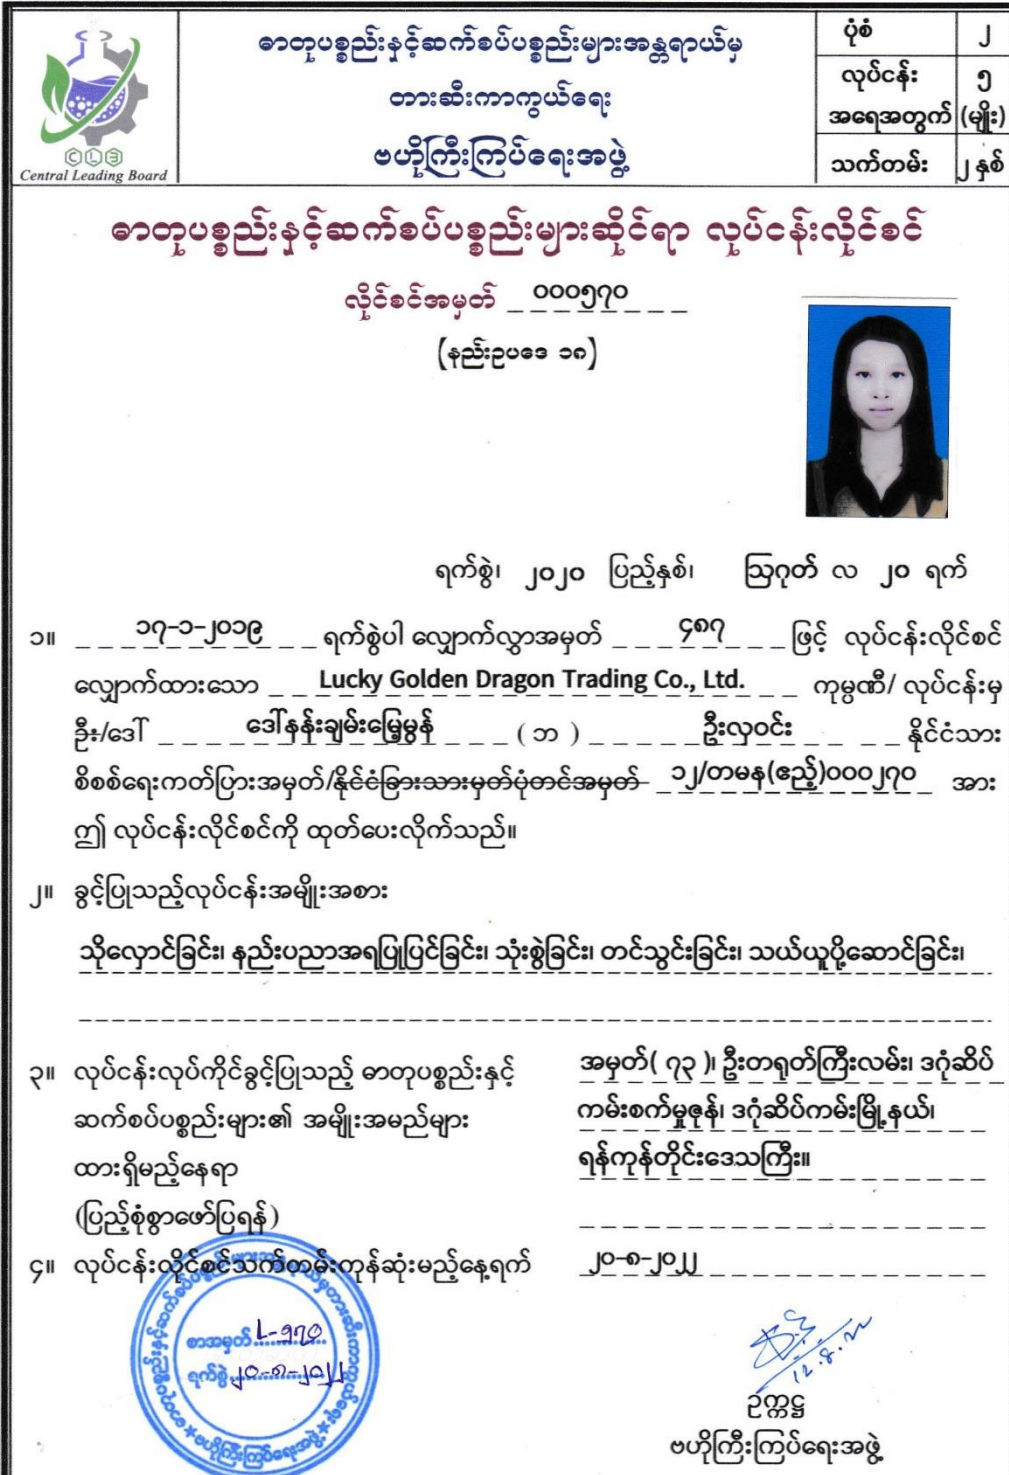 CLB
Central Leading Board
ဓာတုပစ္စည်းနှင့်ဆက်စပ်ပစ္စည်းများအန္တရာယ်မှ
တားဆီးကာကွယ်ရေး
ဗဟိုကြီးကြပ်ရေးအဖွဲ့
ပုံစံ ၂
လုပ်ငန်း အရေအတွက် ၅ (မျိုး)
သက်တမ်း ၂ နှစ်
ဓာတုပစ္စည်းနှင့်ဆက်စပ်ပစ္စည်းများဆိုင်ရာ လုပ်ငန်းလိုင်စင်
လိုင်စင်အမှတ် ၀၀၀၅၇၀
(နည်းဥပဒေ ၁၈)
ရက်စွဲ၊ ၂၀၂၀ ပြည့်နှစ်၊ ဩဂုတ် လ ၂၀ ရက်
၁။ ၁၇-၁-၂၀၁၉ ရက်စွဲပါ လျှောက်လွှာအမှတ် ၄၈၇ ဖြင့် လုပ်ငန်းလိုင်စင်
လျှောက်ထားသော Lucky Golden Dragon Trading Co., Ltd. ကုမ္ပဏီ/ လုပ်ငန်းမှ
ဦး/ဒေါ် ဒေါ်နန်းချမ်းမြေ့မွန် ( ဘ ) ဦးလှဝင်း နိုင်ငံသား
စိစစ်ရေးကတ်ပြားအမှတ်/နိုင်ငံခြားသားမှတ်ပုံတင်အမှတ် ၁၂/တမန(ဧည့်)၀၀၀၂၇၀ အား
ဤ လုပ်ငန်းလိုင်စင်ကို ထုတ်ပေးလိုက်သည်။
၂။ ခွင့်ပြုသည့်လုပ်ငန်းအမျိုးအစား
သိုလှောင်ခြင်း၊ နည်းပညာအရပြုပြင်ခြင်း၊ သုံးစွဲခြင်း၊ တင်သွင်းခြင်း၊ သယ်ယူပို့ဆောင်ခြင်း၊
၃။ လုပ်ငန်းလုပ်ကိုင်ခွင့်ပြုသည့် ဓာတုပစ္စည်းနှင့်
ဆက်စပ်ပစ္စည်းများ၏ အမျိုးအမည်များ
ထားရှိမည့်နေရာ
(ပြည့်စုံစွာဖော်ပြရန်)
အမှတ်( ၇၃ )၊ ဦးတရုတ်ကြီးလမ်း၊ ဒဂုံဆိပ်
ကမ်းစက်မှုဇုန်၊ ဒဂုံဆိပ်ကမ်းမြို့နယ်၊
ရန်ကုန်တိုင်းဒေသကြီး။
၄။ လုပ်ငန်းလိုင်စင်သက်တမ်းကုန်ဆုံးမည့်နေ့ရက် ၂၀-၈-၂၀၂၂
ဓာတုပစ္စည်းနှင့်ဆက်စပ်ပစ္စည်းများအန္တရာယ်မှတားဆီးကာကွယ်ရေး
ဗဟိုကြီးကြပ်ရေးအဖွဲ့
စာအမှတ် L-၅၇၀
ရက်စွဲ ၂၀-၈-၂၀၂၂
12.8.
ဥက္ကဋ္ဌ
ဗဟိုကြီးကြပ်ရေးအဖွဲ့